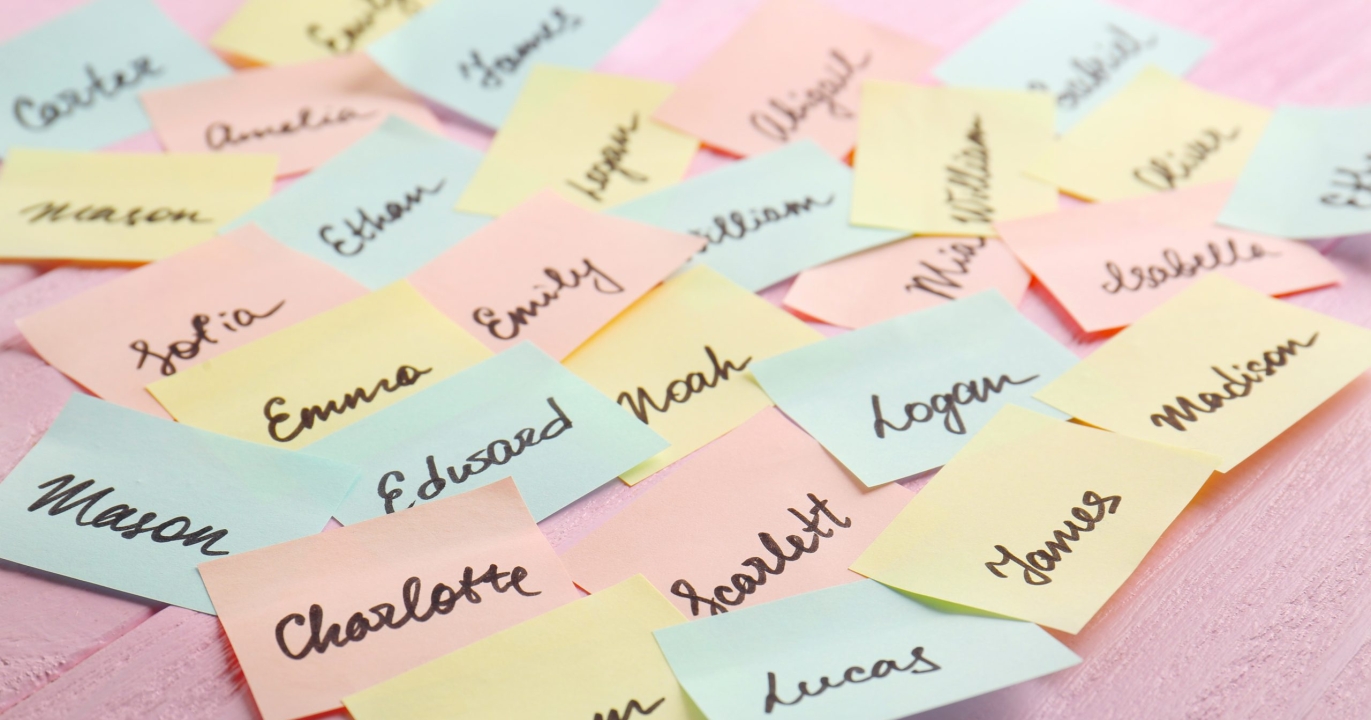 Emily
James
Carter
Abigail
Amelia
Logan
William
Oliver
Mason
Ethan
William
Mia
Isabella
Sofia
Emily
Emma
Noah
Logan
Madison
Edward
Mason
Scarlett
James
Charlotte
Lucas